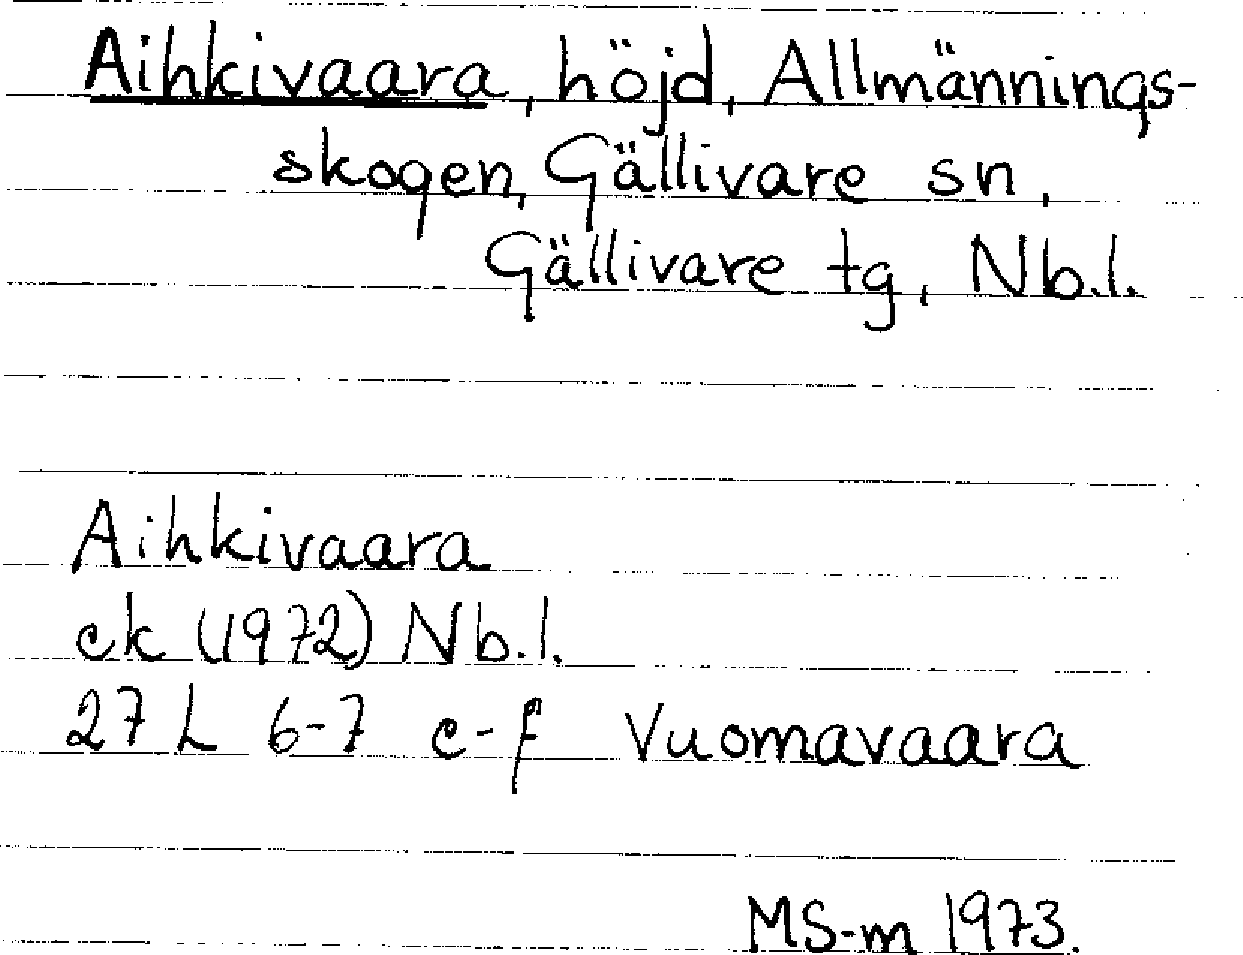 Aihkivaara, höjd, Allmännings-
skogen, Gällivare sn,
Gällivare tg, Nb.l.
Aihkivaara
ek (1972) Nb.l.
27 L 6-7 e-f Vuomavaara
MS-m 1973.